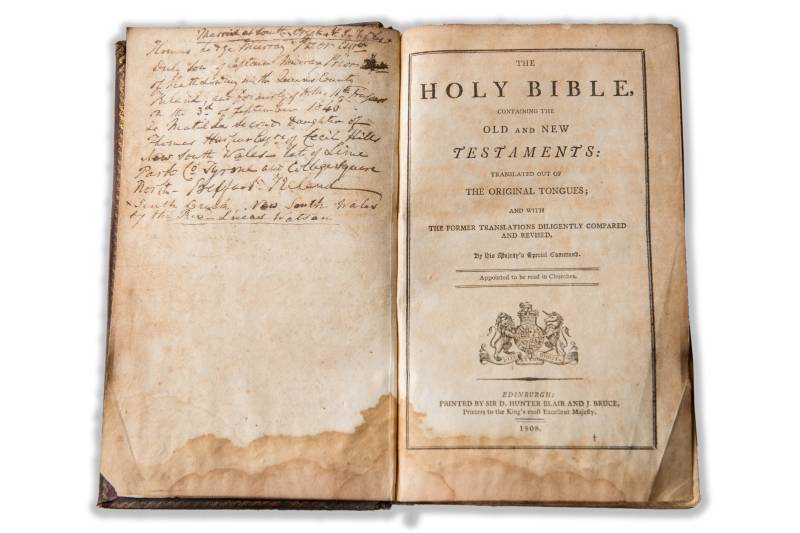 Married at South Creek
Thomas Lodge Murray Prior Esqre
Only Son of Captain Murray Prior
of Rathdowney in the Queens County
Ireland, and formerly of Hills
on the 3rd of September 1846
to Matilda second Daughter of
Thomas Harpur Esqre of Cecil Hills
New South Wales - late of Lime
Park Co Tyrone and College Square
North - Belfast - Ireland
South Creek New South Wales
by the Rev Lucas Watson
THE
HOLY BIBLE,
CONTAINING THE
OLD AND NEW
TESTAMENTS:
TRANSLATED OUT OF
THE ORIGINAL TONGUES;
AND WITH
THE FORMER TRANSLATIONS DILIGENTLY COMPARED
AND REVISED,
By his Majesty's Special Command.
Appointed to be read in Churches.
EDINBURGH:
PRINTED BY SIR D. HUNTER BLAIR AND J. BRUCE,
Printers to the King's most Excellent Majesty.
1808.